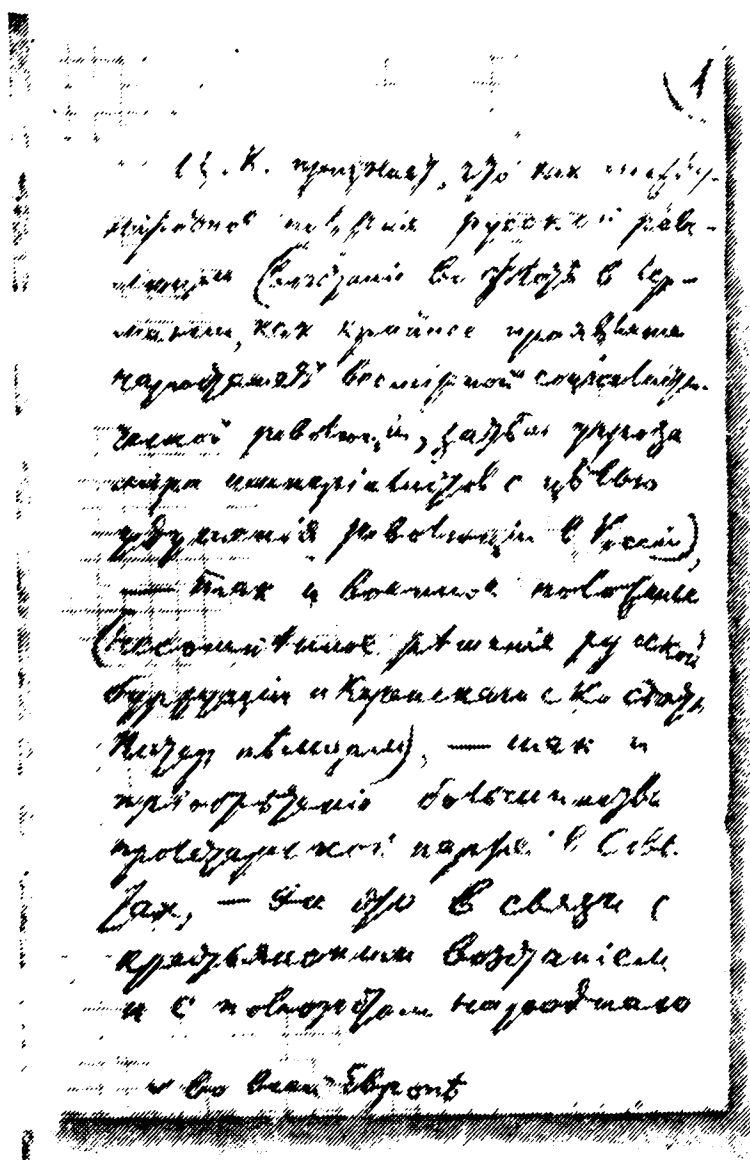 1
Ц.К. признает, что как между-
народное положенiе русской рево-
люцiи (возстанiе во флотѣ в Гер-
манiи, как крайнее проявленiе
нарастанiя всемiрной соцiалисти-
ческой революцiи, затѣм угроза
мира имперiалистов с цѣлью
удушенiя революцiи в Россiи),
— так и военное положенiе
(несомнѣнное рѣшенiе русской
буржуазiи и Керенскаго с Ко сдать
Питер нѣмцам), — так и
прiобрѣтенiе большинства
пролетарской партiей в Совѣ-
тах, — все это в связи с
крестьянским возстанiем
и с поворотом народнаго
v во всей Европѣ